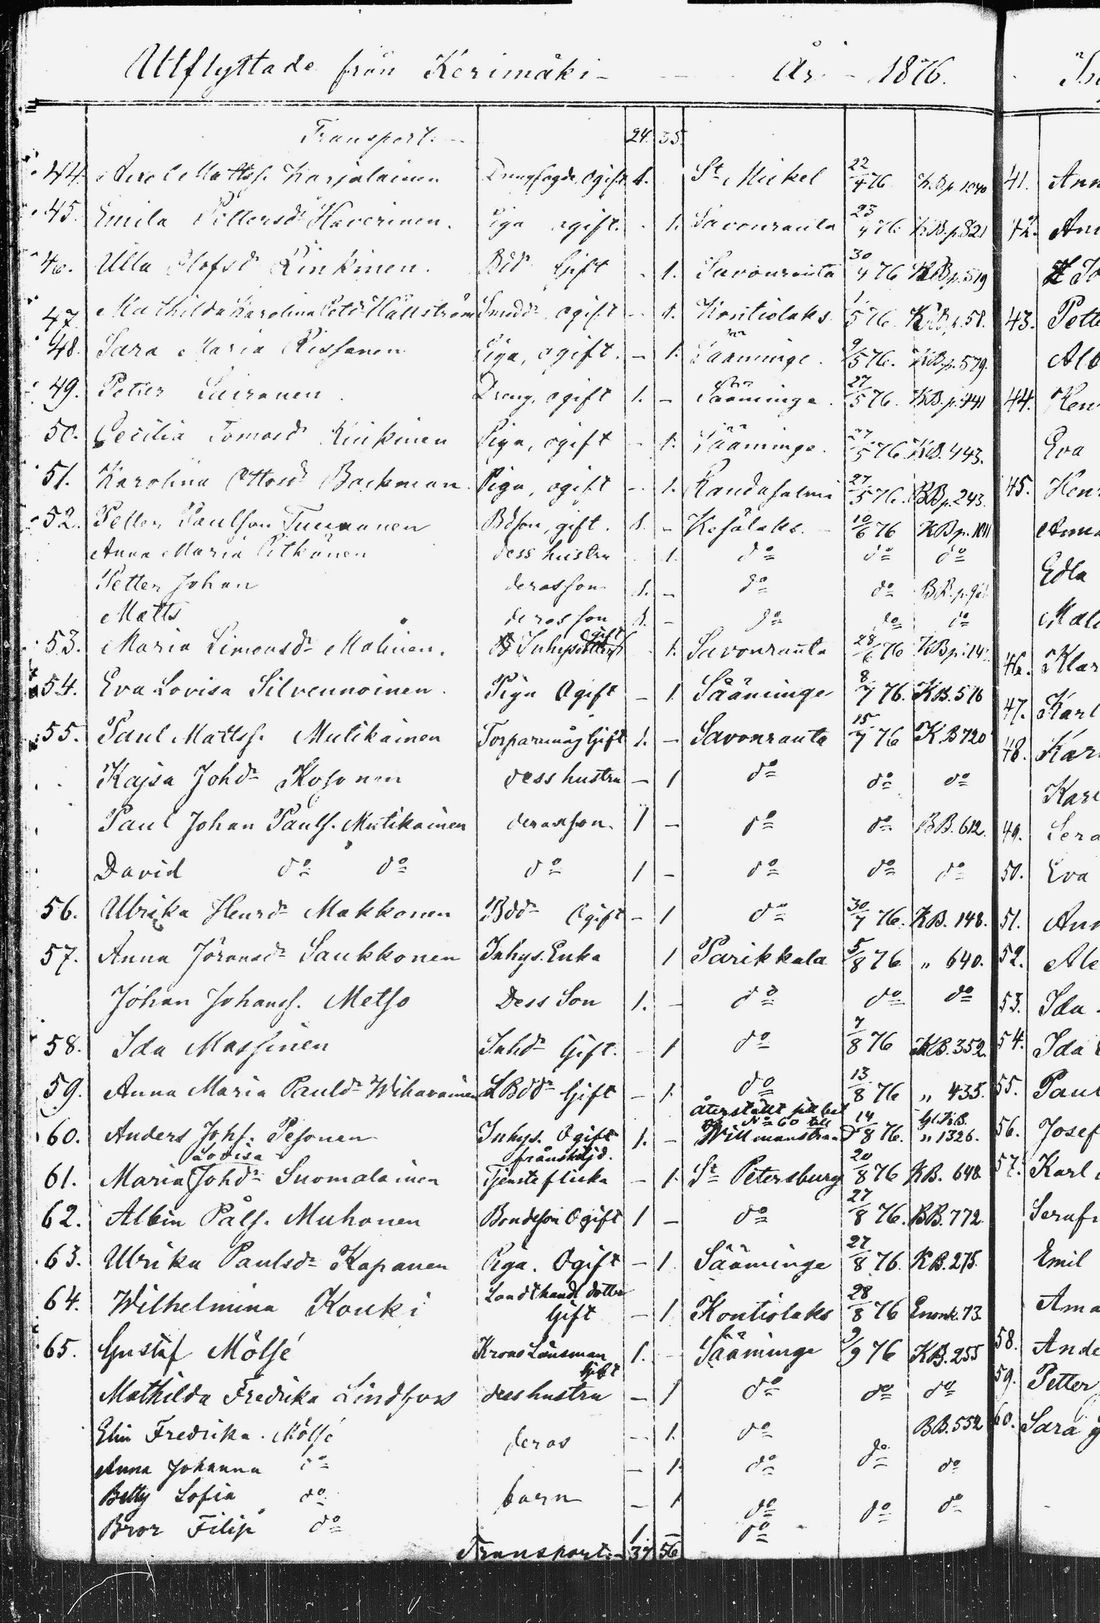 Utflyttade från Kerimäki År 1876.
Transport. 24. 35
44. Matts. Karjalainen ogift 1. St Mickel 22/4 76
45. Emila Pettersdr Haverinen. Piga ogift. - 1. Savonranta 23/4 76. KB p. 821
46. Ulla Olofsdr Kinkinen. Gift - 1. Savonranta 30/4 76 KB p. 519
47. Mathilda Karolina Hällström ogift - 1. Kontiolaks 1/5 76. KB p. 58.
48. Sara Maria Rissanen Piga, ogift. - 1. Sääminge. 9/5 76. KB p. 579.
49. Petter Dreng, ogift 1. - Sääminge. 27/5 76. KB p. 441
50. Cecilia Tomasdr Kinkinen Piga, ogift - 1. Sääminge. 27/5 76 KB. 443.
51. Karolina Ottosdr Backman. Piga, ogift - 1. Randasalmi 27/5 76. BB p. 243.
52. Petter Paulsson Bdson, gift. 1. - Kesälaks. - 10/6 76 KB p.
Anna Maria Pitkänen dess hustru 1. do do do
Petter Johan deras son 1. - do do BB. p.
Matts deras son 1. - do do do
53. Maria Simonsdr Malinen. Inhys ogift 1. Savonranta 28/6 76 KB p. 14
54. Eva Lovisa Silvennoinen. Piga Ogift - 1 Sääminge 8/7 76. KB. 576
55. Paul Matts. Mulikainen Gift 1. - Savonranta 15/7 76 KB 720
Kajsa Johdr Kosonen dess hustru - 1 do do do
Paul Johan Pauls. Mulikainen deras son. 1 - do do BB. 612.
David do do do 1 - do do do
56. Ulrika Henrdr Makkonen Bddr Ogift - 1 do 30/7 76. KB. 148.
57. Anna Jöransdr Saukkonen Inhys. Enka 1 Parikkala 5/8 76 " 640.
Johan Johanss. Metso Dess Son 1. - do do do
58. Ida Massinen Inhdr Gift. - 1 do 7/8 76 KB. 352
59. Anna Maria Pauldr Wihavainen LBddr Gift - 1. do 13/8 76 " 435.
återställt
No 60 till
60. Anders Johs. Pesonen Inhys. Ogift 1. - Willmanstrand 14/8 76. " 1326.
Lovisa frånskild.
61. Maria Johdr Suomalainen Tjensteflicka - 1. St Petersburg 20/8 76 KB. 648
62. Albin Påls. Muhonen Bondeson Ogift 1 - do 27/8 76. BB. 772
63. Ulrika Paulsdr Kapanen Piga. Ogift - 1. Sääminge 27/8 76. KB. 275.
64. Wilhelmina Kouki Landthand. dotter
Gift - 1. Kontiolaks 28/8 76 73.
65. Gustaf Mölsé Krono Länsman
Gift 1. - Sääminge 9/9 76 KB. 255
Mathilda Fredrika Lindfors dess hustru - 1 do do do
Elin Fredrika Mölsé deras - 1. do BB. 552
Anna Johanna do - 1. do do do
Betty Sofia do. barn - 1 do do do
Bror Filip do 1. - do
Transport. - 37. 56

41. Ann
42. Ann
43. Pette
Alb
44.
Eva
45. Hen
Anna
Edla
46. Klar
47. Karl
48. Kar
49.
50. Eva
51. Ann
52. Ale
53. Ida
54. Ida
55. Paul
56. Josef
57. Karl
Serafi
Emil
Ama
58. Ande
59. Petter
60. Sara